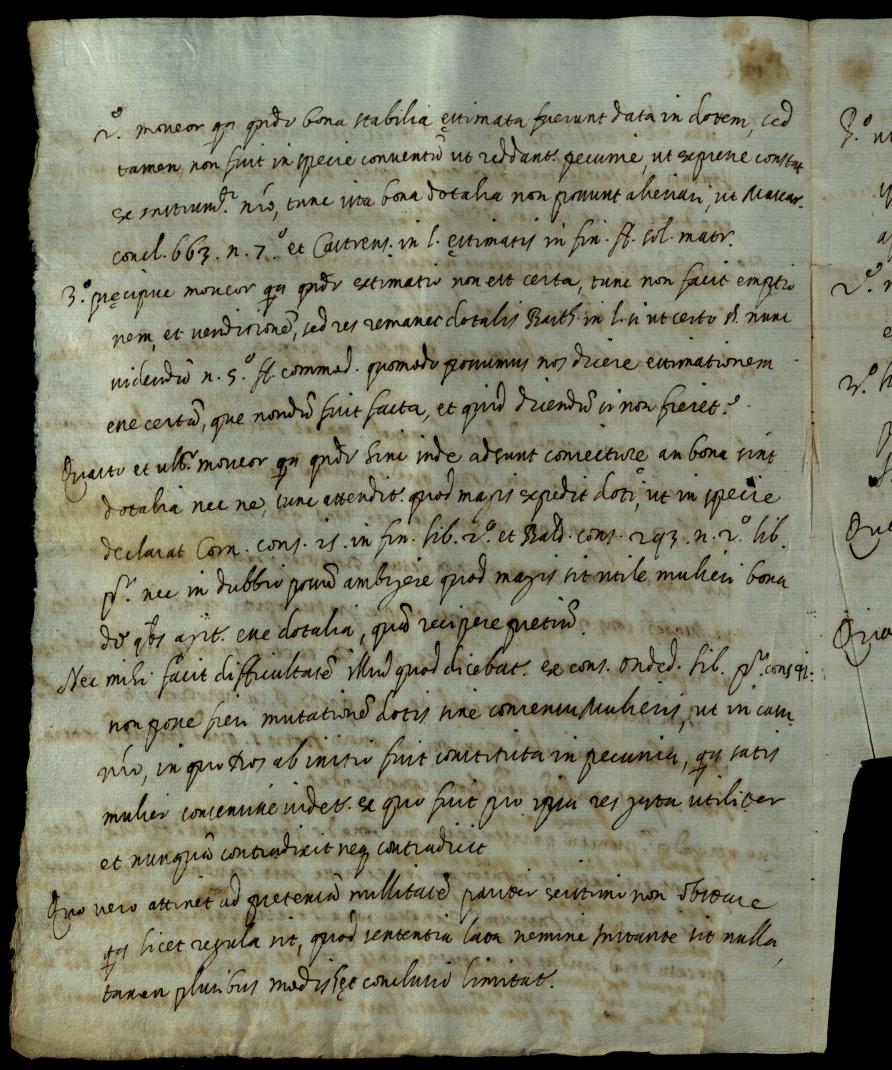 2.º moveor qa qndo bona stabilia ęstimata fuerunt data in dotem, sed
tamen non fuit in specie conventũ ut reddant. pecunie, ut expresse constat
ex instrum.to nro, tunc ista bona dotalia non possunt alienari, ut Mascar.
concl. 663. n. 7.º et Castrens. in l. ęstimatis in fin. ff. sol. matr.
3.º pręcipue moveor qa qndo extimatio non est certa, tunc non facit emptio
nem, et venditionẽ, sed res remanet dotalis Barth. in l. si ut certo §. nunc
videndũ n. 5.º ff. commod. quomodo possumus nos dicere estimationem
esse certã, que nondũ fuit facta, et quid dicendũ si non fieret.?
Quarto et ult.º moveor qa qndo hinc inde adsunt coniecture an bona sint
dotalia nec ne, tunc attendit. quod magis expedit doti, ut in specie
declarat Corn. cons. 25. in fin. lib. 2.º et Bald. cons. 293. n. 2.º lib.
pr.º nec in dubbio possũ ambigere quod magis sit utile mulieri bona
de qbs agit. esse dotalia, quã recipere pretiũ.
Nec mihi facit difficultatẽ illud quod dicebat. ex cons. Onded. lib. pr.º cons 41.
non posse fieri mutationẽ dotis sine consensu Mulieris, ut in casu
nro, in quo dos ab initio fuit constituta in pecunia, qa satis
mulier consensisse videt. ex quo fuit pro ipsa res gesta utiliter
et nunquã contradixit neq contradicit
Quo vero attinet ad pretensã nullitatẽ pariter sentimi non obstare
qa licet regula sit, quod sententia lata nemine instante sit nulla,
tamen pluribus modis hęc conclusio limitat.
3.º
2.º